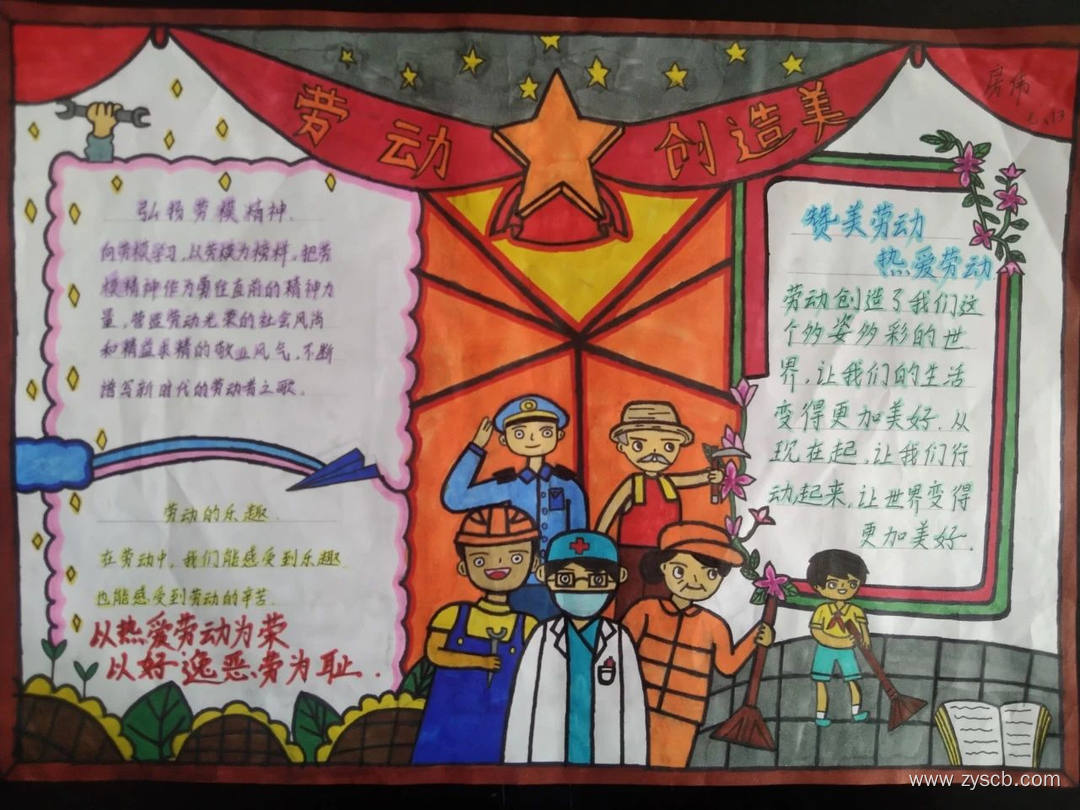 劳动 创造美
弘扬劳模精神.
向劳模学习,以劳模为榜样,把劳
模精神作为勇往直前的精神力
量,营造劳动光荣的社会风尚
和精益求精的敬业风气,不断
谱写新时代的劳动者之歌.
劳动的乐趣.
在劳动中,我们能感受到乐趣
也能感受到劳动的辛苦.
以热爱劳动为荣
以好逸恶劳为耻.
赞美劳动
热爱劳动
劳动创造了我们这
个多姿多彩的世
界,让我们的生活
变得更加美好.从
现在起,让我们行
动起来,让世界变得
更加美好.
www.zyscb.com